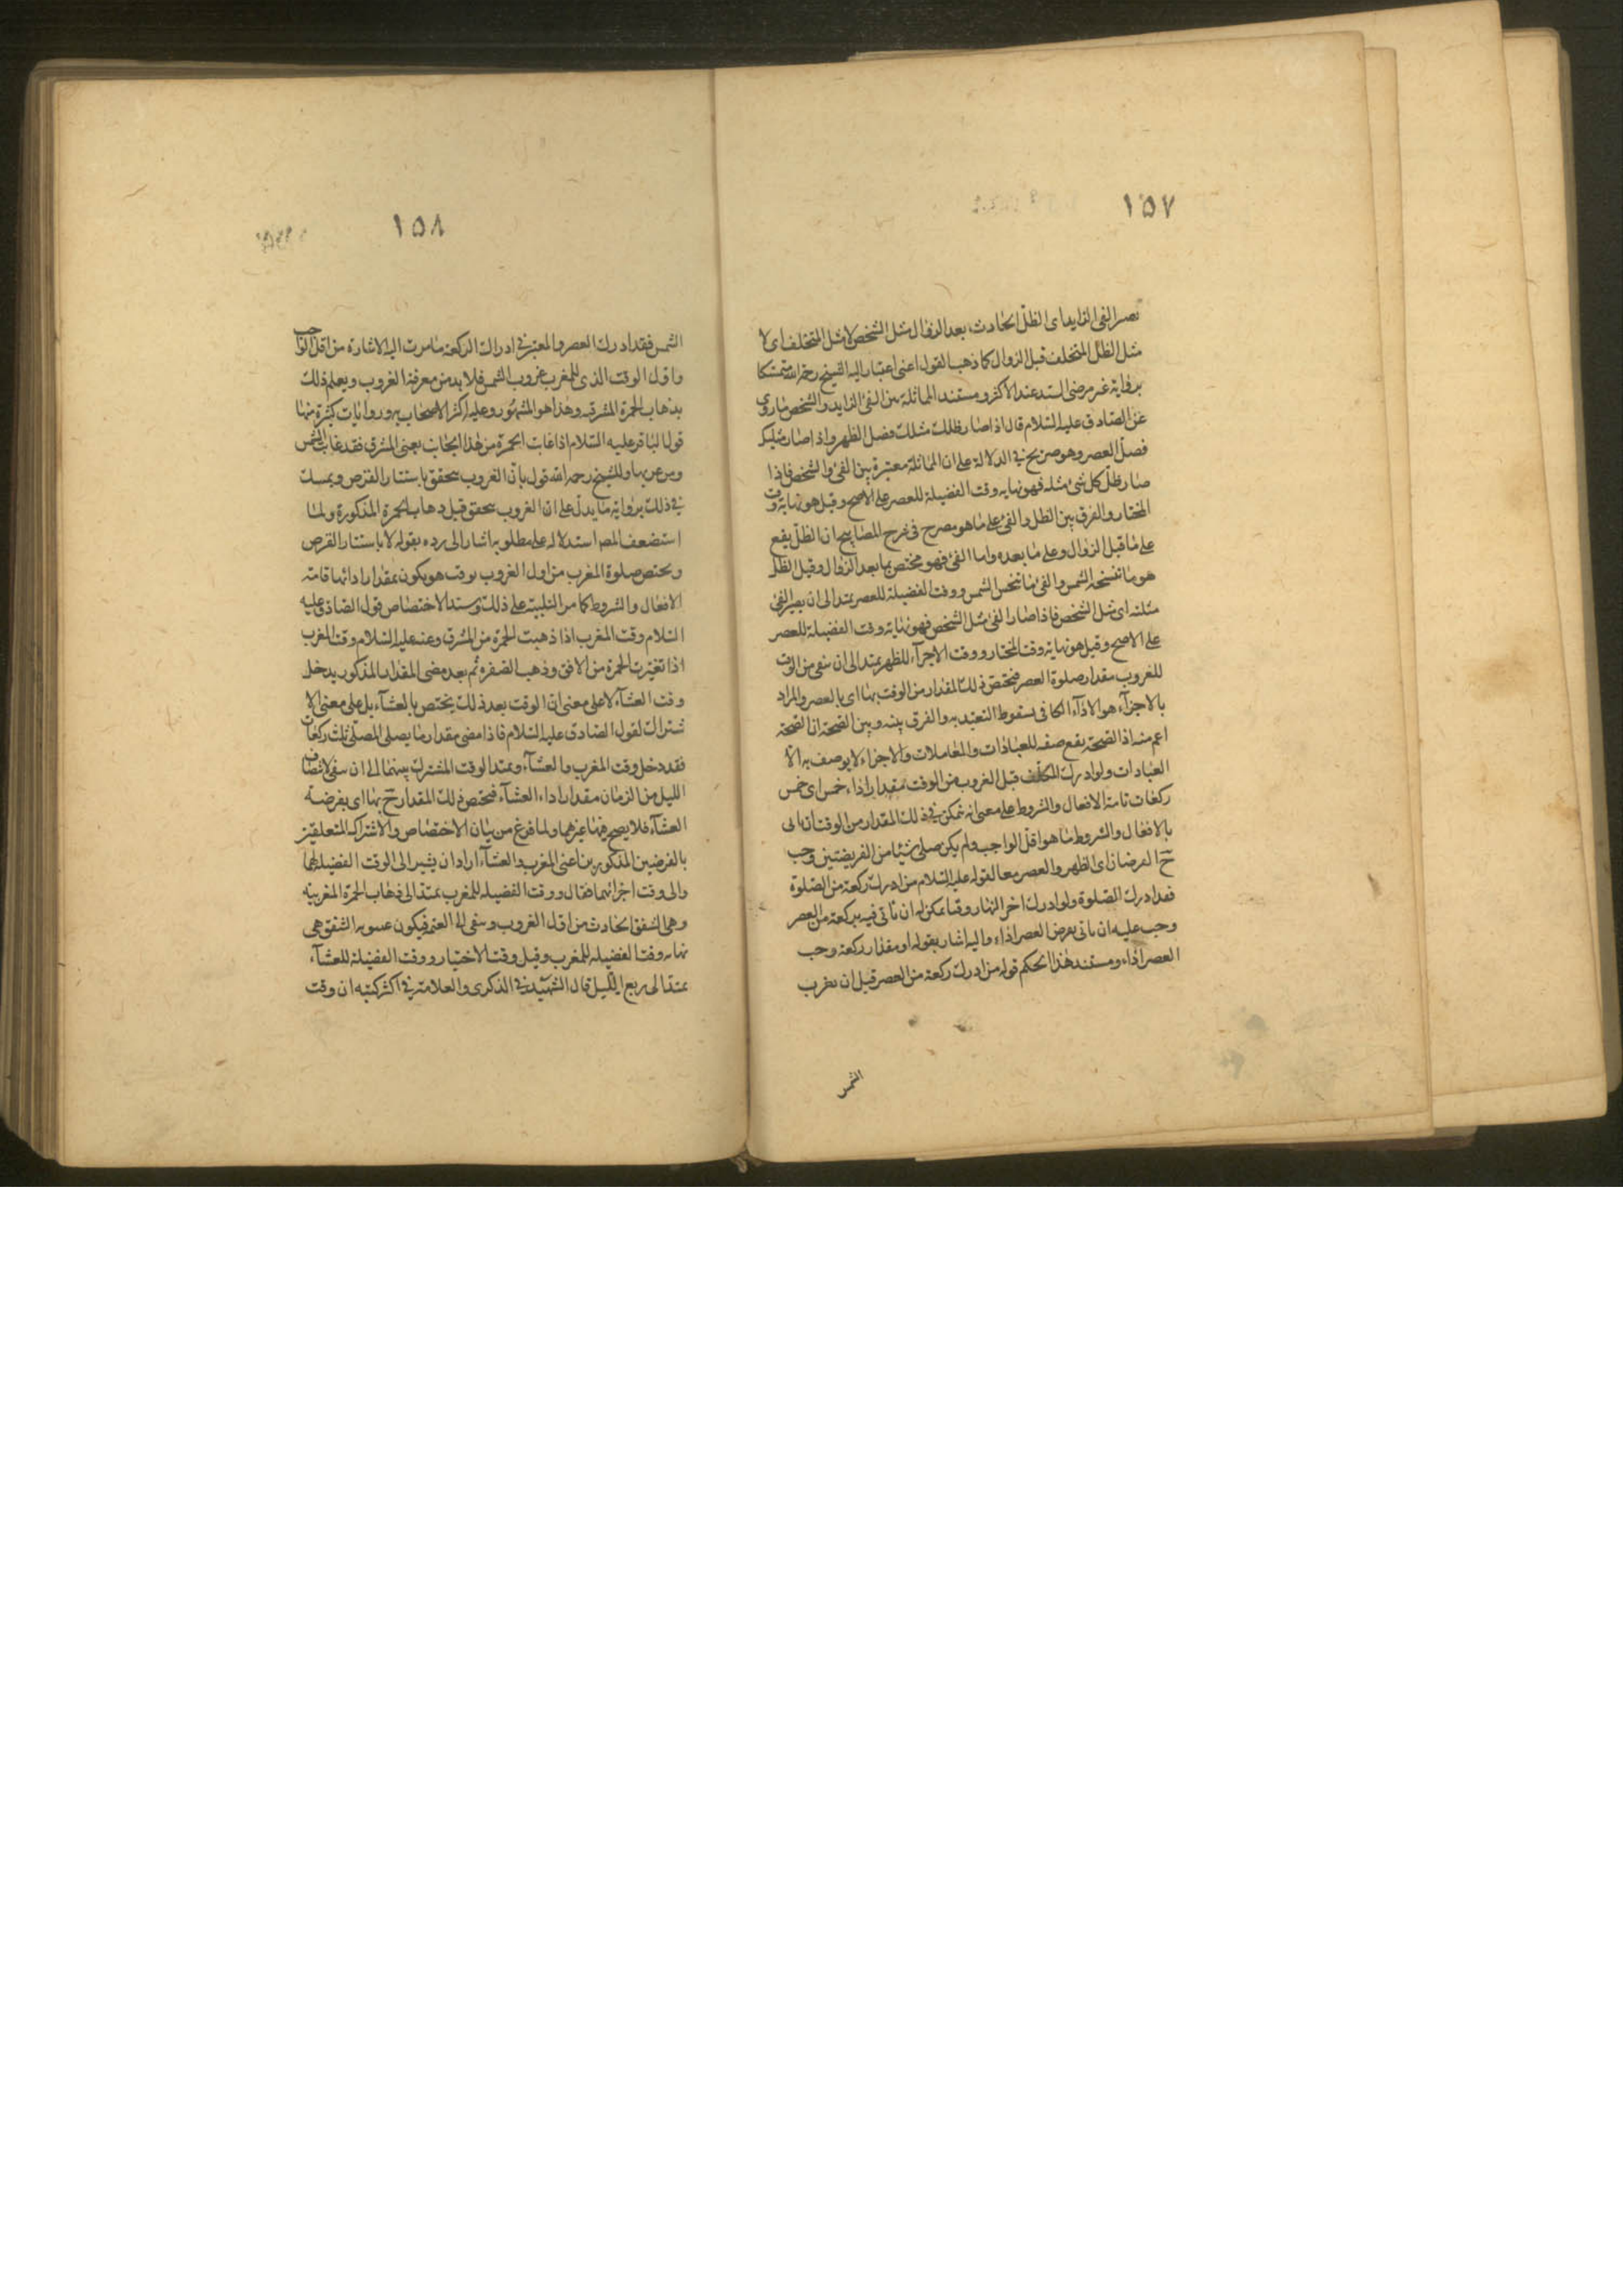 ١٥٧
تصير الفئ الزايد اى الظل الحادث بعد الزوال مثل الشخص لا مثل المتخلف اى لا
مثل الظل المتخلف قبل الزوال كما ذهب القول اعنى اعتبار اليه الشيخ رحمه الله متمسكا
برواية غير مرضى السند عند الاكثر ومستند المماثلة بين الفئ الزايد والشخص ما روى
عن الصادق عليه السلام قال اذا صار ظلك مثلك فصل الظهر واذا صار مثليك
فصل العصر وهو صريح فى الدلالة على ان المماثلة معتبرة بين الفئ والشخص فاذا
صار ظل كل شئ مثله فهو نهاية وقت الفضيلة للعصر على الاصح وقيل هو نهاية وقت
المختار والفرق بين الظل والفئ على ما هو مصرح فى شرح المصابيح ان الظل يقع
على ما قبل الزوال وعلى ما بعده واما الفئ فهو مختص بما بعد الزوال وقيل الظل
هو ما تنسخه الشمس والفئ ما نسخ الشمس ووقت الفضيلة للعصر يمتد الى ان يصير الفئ
مثله اى مثل الشخص فاذا صار الفئ مثل الشخص فهو نهاية وقت الفضيلة للعصر
على الاصح وقيل هو نهاية وقت المختار ووقت الاجزآء للظهر يمتد الى ان يبقى من الوقت
للغروب مقدار صلوة العصر فيختص ذلك المقدار من الوقت بها اى بالعصر والمراد
بالاجزآء هو الاداء الكافى لسقوط التعبد به والفرق بينه وبين الصحة ان الصحة
اعم منه اذ الصحة يقع صفة للعبادات والمعاملات والاجزاء لا يوصف به الا
العبادات ولو ادرك المكلف قبل الغروب من الوقت بمقدار اداء خمس اى خمس
ركعات تامة الافعال والشروط على معنى انه تمكن فى ذلك المقدار من الوقت ان ياتى
بالافعال والشروط ما هو اقل الواجب ولم يكن صلى شيئا من الفريضتين وجب
ح الفرضان اى الظهر والعصر معا لقوله عليه السلام من ادرك ركعة من الصلوة
فقد ادرك الصلوة ولو ادرك اخر النهار وقتا يمكن له ان ياتى فيه بركعة من العصر
وجب عليه ان ياتى بفرض العصر اداء واليه اشار بقوله او مقدار ركعة وجب
العصر اداء ومستند هذا الحكم قوله من ادرك ركعة من العصر قبل ان يغرب
الشمس
١٥٨
الشمس فقد ادرك العصر والمعتبر فى ادراك الركعة ما مرت اليه الاشارة من اقل الواجب
واول الوقت الذى للمغرب غروب الشمس فلا بد من معرفة الغروب ويعلم ذلك
بذهاب الحمرة المشرقيه وهذا هو المشهور وعليه اكثر الاصحاب به وروايات كثيرة منها
قول الباقر عليه السلام اذا غابت الحمرة من هذا الجانب يعنى المشرق فقد غابت الشمس
وللشيخ رحمه الله قول بان الغروب يتحقق باستتار القرص ويمسك
فى ذلك برواية ما يدل على ان الغروب يتحقق قبل ذهاب الحمرة المذكورة ولما
استضعف المص استدلاله على مطلوبه اشار الى رده بقوله لا باستتار القرص
ويختص صلوة المغرب من اول الغروب بوقت هو يكون بمقدار ادائها قامة
الافعال والشروط كما مر التنبيه على ذلك وسند الاختصاص قول الصادق عليه
السلام وقت المغرب اذا ذهبت الحمرة من المشرق وعنه عليه السلام وقت المغرب
اذا تغيرت الحمرة من الافق وذهب الصفرة ثم بعد مضى المقدار المذكور يدخل
وقت العشآء لا على معنى ان الوقت بعد ذلك يختص بالعشآء بل على معنى الا
شتراك لقول الصادق عليه السلام فاذا مضى مقدار ما يصلى المصلى ثلث ركعات
فقد دخل وقت المغرب والعشآء ويمتد الوقت المشترك بينهما الى ان يبقى لانتصاف
الليل من الزمان مقدار اداء العشآء فيختص ذلك المقدار ح بها اى بفرضة
العشآء فلا يصح فيها غيرهما ولما فرغ من بيان الاختصاص والاشتراك المتعلقين
بالفرضين المذكورين اعنى المغرب والعشآء اراد ان يشير الى الوقت الفضيلة لهما
والى وقت اجزائهما فقال ووقت الفضيلة للمغرب يمتد الى ذهاب الحمرة المغربية
وهى الشفق الحادث من اول الغروب ويبقى الى العتمة فيكون غيبوبة الشفق هى
نهاية وقت الفضيلة للمغرب وقيل وقت الاختيار ووقت الفضيلة للعشآء
يمتد الى ربع الليل قال الشهيد فى الذكرى والعلامة فى اكثر كتبه ان وقت